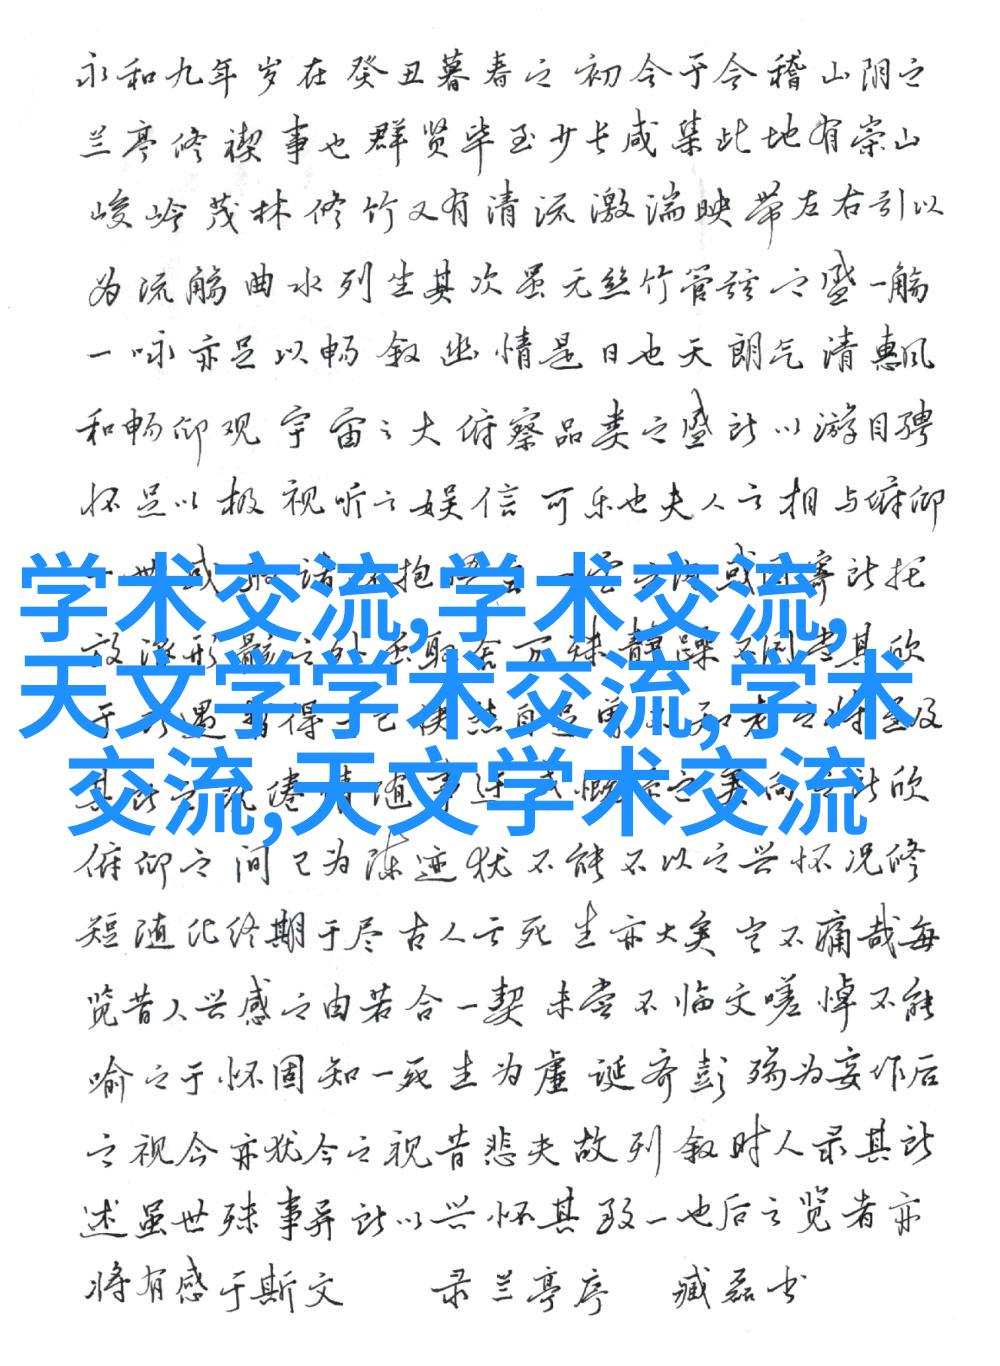 永和九年岁在癸丑暮春之初会于会稽山阴之
兰亭修禊事也群贤毕至少长咸集此地有崇山
峻岭茂林修竹又有清流激湍映带左右引以
为流觞曲水列坐其次虽无丝竹管弦之盛一觞
一咏亦足以畅叙幽情是日也天朗气清惠风
和畅仰观宇宙之大俯察品类之盛所以游目骋
怀足以极视听之娱信可乐也夫人之相与俯仰
一世或 诸 抱 一室之内或因寄所托
学术交流,学术交流,
放浪形骸之外 取舍万殊静躁不同当其欣
天文学学术交流,学术
于所遇暂得于己快然自足 知老之将至及
其所之既倦情随事迁感慨系之矣向之所欣
交流,天文学术交流
俯仰之间已为陈迹犹不能不以之兴怀况修
短随化终期于尽古人云死生亦大矣岂不痛哉每
览昔人兴感之由若合一契未尝不临文嗟悼不能
喻之于怀固知一死生为虚诞齐彭殇为妄作后
之视今亦犹今之视昔悲夫故列叙时人录其所
述虽世殊事异所以兴怀其致一也后之览者亦
将有感于斯文 录兰亭序 臧磊书